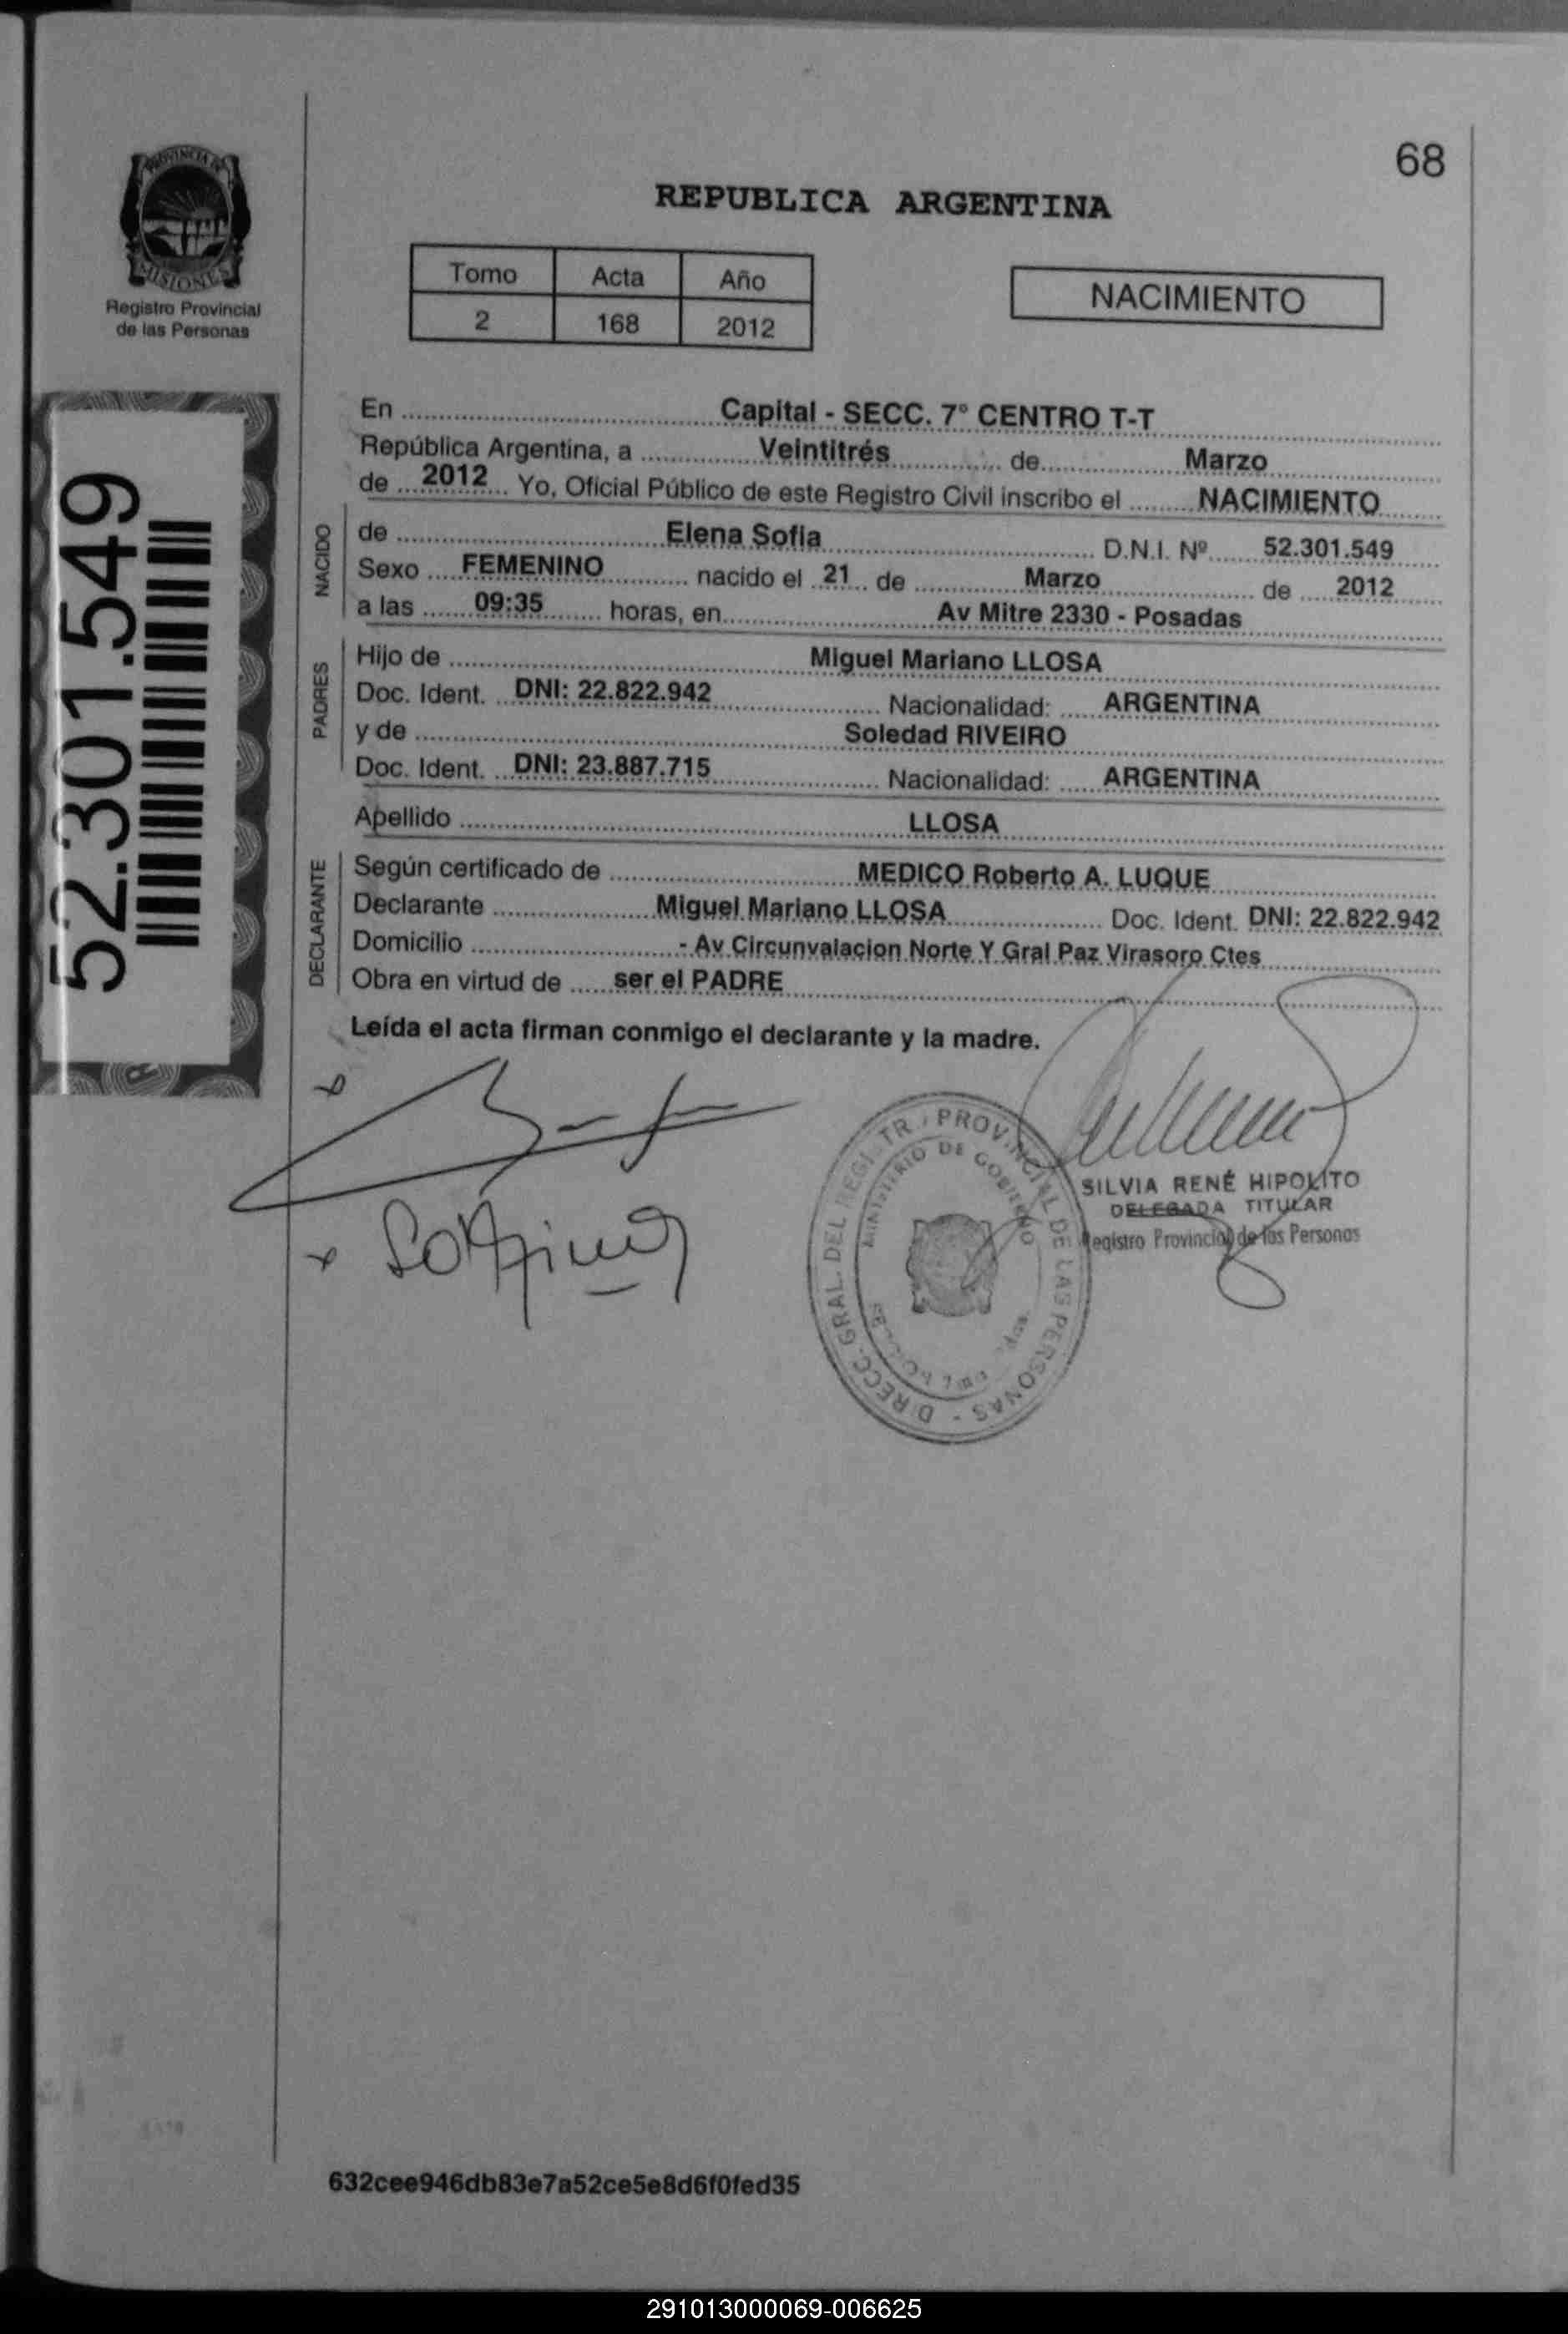 68
PROVINCIA DE
MISIONES
Registro Provincial
de las Personas
REPUBLICA ARGENTINA
Tomo Acta Año
2 168 2012
NACIMIENTO
52.301.549
En Capital - SECC. 7° CENTRO T-T
República Argentina, a Veintitrés de Marzo
de 2012 Yo, Oficial Público de este Registro Civil inscribo el NACIMIENTO
NACIDO
de Elena Sofia D.N.I. Nº 52.301.549
Sexo FEMENINO nacido el 21 de Marzo de 2012
a las 09:35 horas, en Av Mitre 2330 - Posadas
PADRES
Hijo de Miguel Mariano LLOSA
Doc. Ident. DNI: 22.822.942 Nacionalidad: ARGENTINA
y de Soledad RIVEIRO
Doc. Ident. DNI: 23.887.715 Nacionalidad: ARGENTINA
Apellido LLOSA
DECLARANTE
Según certificado de MEDICO Roberto A. LUQUE
Declarante Miguel Mariano LLOSA Doc. Ident. DNI: 22.822.942
Domicilio - Av Circunvalacion Norte Y Gral Paz Virasoro Ctes
Obra en virtud de ser el PADRE
Leída el acta firman conmigo el declarante y la madre.
DIRECC. GRAL. DEL REGISTR. PROVINCIAL DE LAS PERSONAS -
MINISTERIO DE GOBIERNO
SILVIA RENÉ HIPOLITO
DELEGADA TITULAR
Registro Provincial de las Personas
632cee946db83e7a52ce5e8d6f0fed35
291013000069-006625